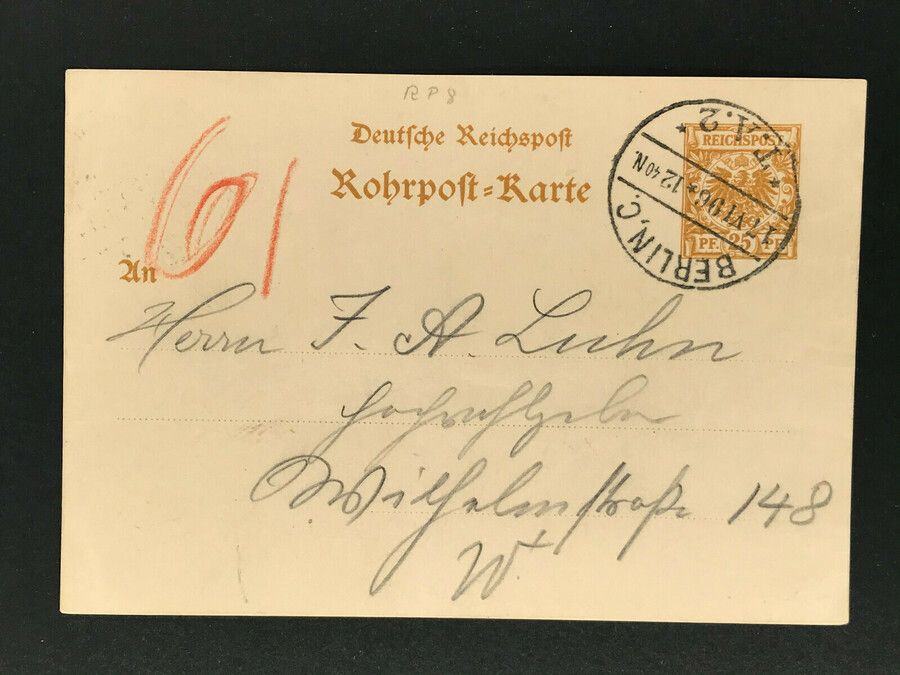 RP8
Deutsche Reichspost
Rohrpost-Karte
REICHSPOST
PF. 25 PF.
BERLIN, C.
17 VI 96 * 12 40 N.
* P.A. 2. *
61
An
Herrn F. A. Luhn
Hochwohlgeborn
Wilhelmstraße 148
W